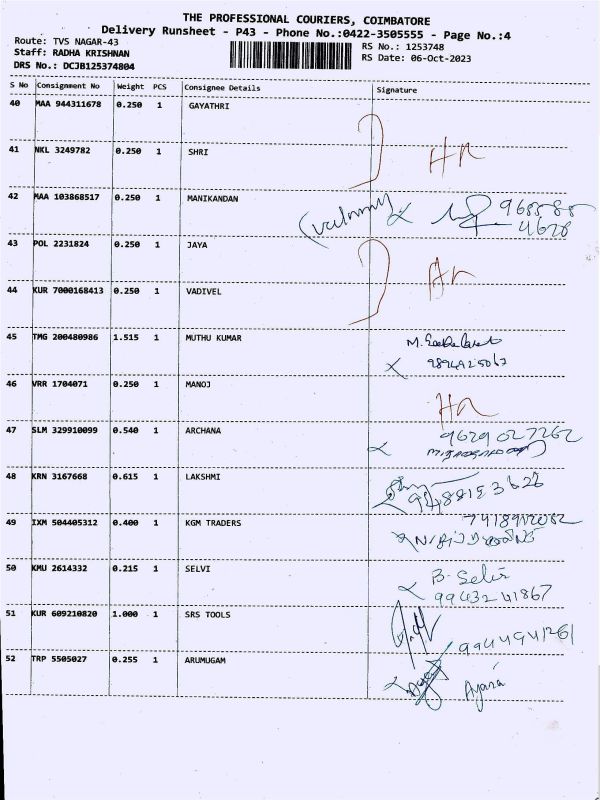 THE PROFESSIONAL COURIERS, COIMBATORE
Delivery Runsheet - P43 - Phone No.:0422-3505555 - Page No.:4
Route: TVS NAGAR-43 RS No.: 1253748
Staff: RADHA KRISHNAN RS Date: 06-Oct-2023
DRS No.: DCJB125374804
S No Consignment No Weight PCS Consignee Details Signature
40 MAA 944311678 0.250 1 GAYATHRI
41 NKL 3249782 0.250 1 SHRI
42 MAA 103868517 0.250 1 MANIKANDAN
43 POL 2231824 0.250 1 JAYA
44 KUR 7000168413 0.250 1 VADIVEL
45 TMG 200480986 1.515 1 MUTHU KUMAR
46 VRR 1704071 0.250 1 MANOJ
47 SLM 329910099 0.540 1 ARCHANA
9629027262
48 KRN 3167668 0.615 1 LAKSHMI
49 IXM 504405312 0.400 1 KGM TRADERS
50 KMU 2614332 0.215 1 SELVI B. Selvi
9943241867
51 KUR 609210820 1.000 1 SRS TOOLS
9944941261
52 TRP 5505027 0.255 1 ARUMUGAM